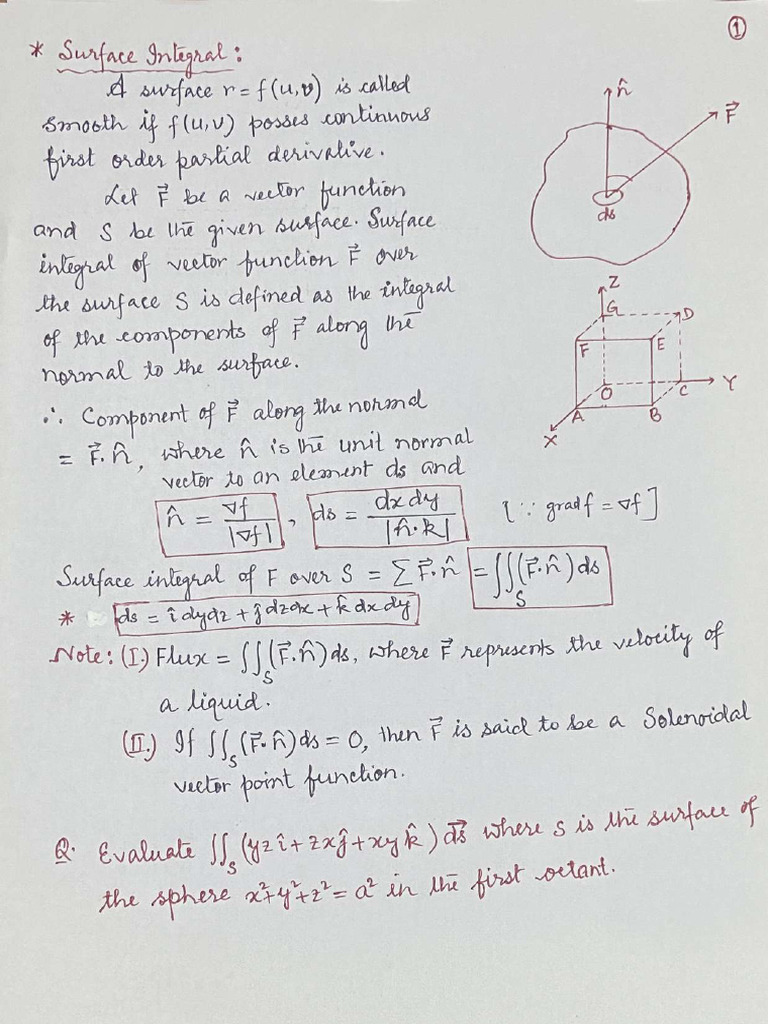 ①
* Surface Integral :
A surface r = f(u,v) is called
smooth if f(u,v) posses continuous
first order partial derivative.
Let F⃗ be a vector function
and S be the given surface. Surface
integral of vector function F⃗ over
the surface S is defined as the integral
of the components of F⃗ along the
normal to the surface.
n̂
F⃗
ds
Z
G
D
F
E
O
C
Y
A
B
X
∴ Component of F⃗ along the normal
= F⃗.n̂, where n̂ is the unit normal
vector to an element ds and
n̂ = ∇f/|∇f| , ds = dx dy/|n̂·k| [∵ grad f = ∇f]
Surface integral of F over S = ∑ F⃗.n̂ = ∬_S (F⃗.n̂) ds
* ds = î dydz + ĵ dzdx + k̂ dx dy
Note : (I.) Flux = ∬_S (F⃗.n̂) ds, where F⃗ represents the velocity of
a liquid.
(II.) If ∬_S (F⃗.n̂) ds = 0, then F⃗ is said to be a Solenoidal
vector point function.
Q. Evaluate ∬_S (yz î + zx ĵ + xy k̂) d⃗s where s is the surface of
the sphere x²+y²+z² = a² in the first octant.